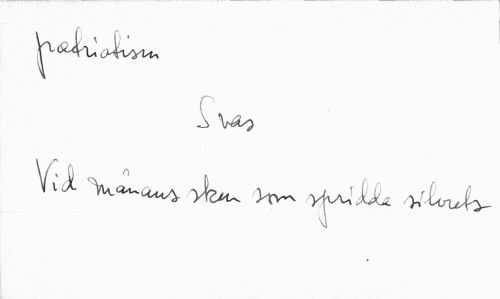 patriotism
Svas
Vid månans sken som spridde silvrets